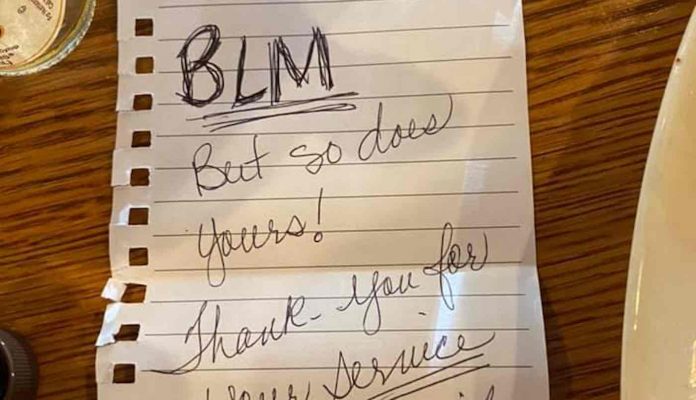 BLM
But so does
yours!
Thank you for
your service